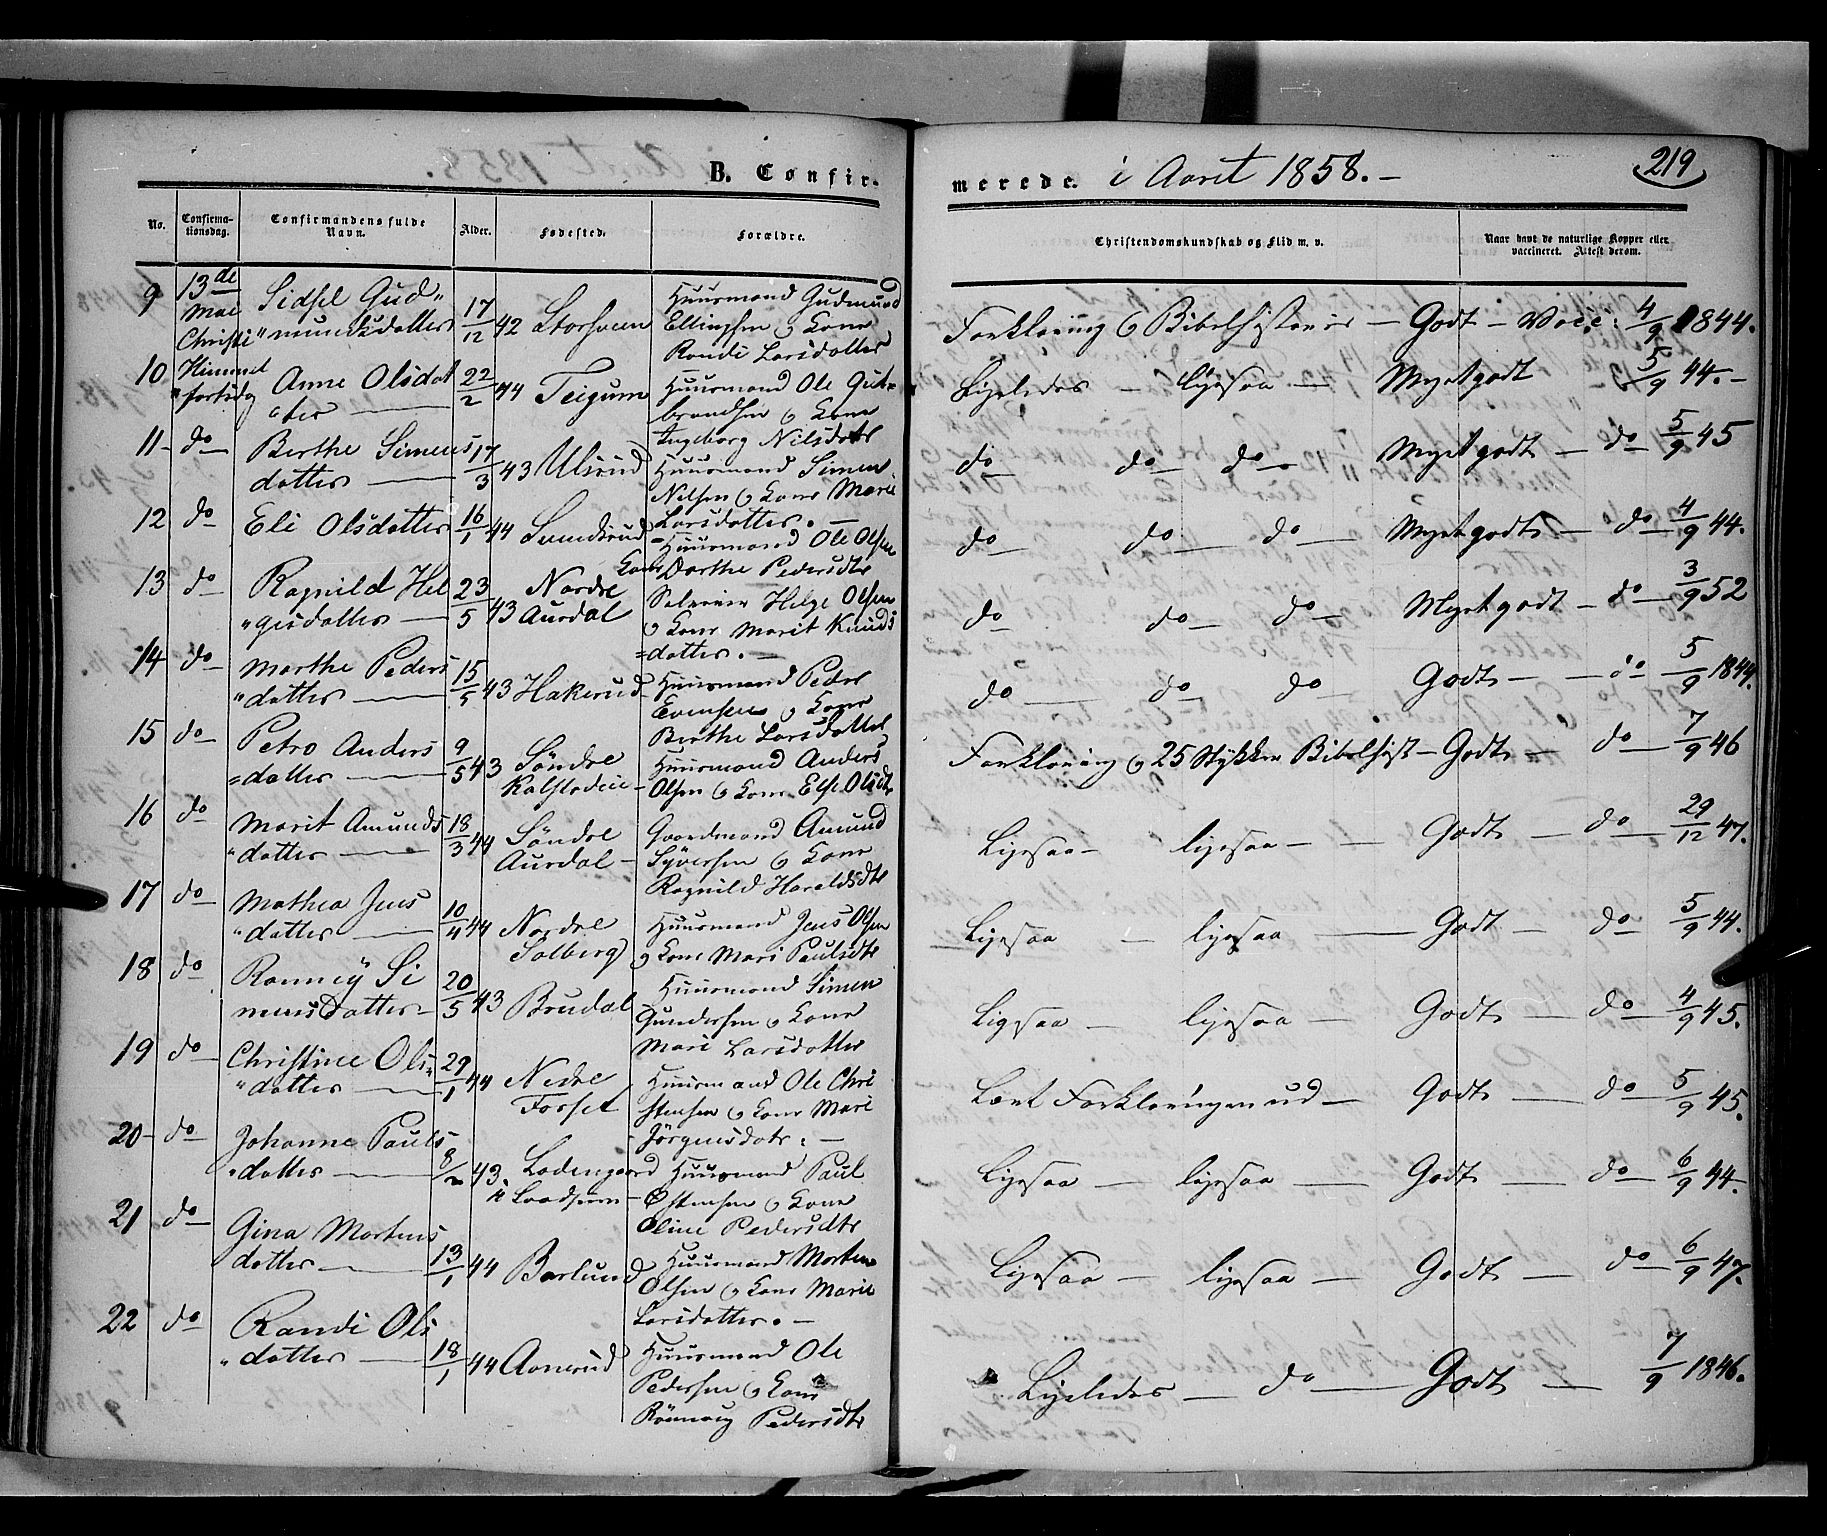 B. Confir-
merede. i Aaret 1858.-
219
No.
Confirma-
tionsdag.
Confirmandens fulde
Navn.
Alder.
Fødested.
Forældre.
Christendomskundskab og Flid m. v.
Naar havt de naturlige Kopper eller
vaccineret. Attest derom.
9 13de Mai Christi Sidsel Gud„
„mundsdatter 17/12 42 Storsveen
Huusmand Gudmund
Ellingsen og Kone
Randi Larsdatter
Forklaring og Bibelhistorie — Godt — Vacc: 4/9 1844.
10 Himmel
fartsdag Anne Olsdat
ter 22/2 44 Teigum
Huusmand Ole Gul-
brandsen og Kone
Ingeborg Nilsdatr
Ligeledes — ligesaa — Megetgodt 5/9 44.-
11- do Berthe Simens
datter 17/3 43 Ulsrud
Huusmand Simen
Nilsen og Kone Marie
Larsdatter. —
do do do Megetgodt — do 5/9 45
12 do Eli Olsdatter 16/1 44
Huusmand Ole Olsen
Kone Dorthe Pedersdtr
do do — do — Megetgodt — do 4/9 44.
13 do Ragnild Hel
„gesdatter — 23/5 43 Nordre
Aurdal
Helge Olsen
og Kone Marit Knuds
=datter. —
do do do — Megetgodt — do 3/9 52
14 do Marthe Peders
„datter — 15/5 43 Hakerud
Huusmand Peder
Evensen og Kone
Berthe Larsdatter
do — do do Godt — do 5/9 1844.
15 do Petra Anders
=datter — 9/5 43 Søndre
Huusmand Anders
Olsen og Kone Else Olsdtr
Forklaring og 25 Stykker Bibelhist — Godt — do 7/9 46
16 do Marit Amunds
„datter — 18/3 44 Søndre
Aurdal —
Gaardmand Amund
Syversen og Kone
Ragnild Haraldsdtr
Ligesaa — ligesaa — Godt — do 29/12 47.
17 do Mathea Jens
„datter — 10/4 44 Nordre
Solberg
Huusmand Jens Olsen
og Kone Mari Paulsdtr
Ligesaa — ligesaa — Godt — do 5/9 44.
18 do Ronney Si
mensdatter — 20/5 43 Brudal
Huusmand Simen
Gundersen og Kone
Mari Larsdatter
Ligesaa — ligesaa — Godt — do 4/9 45.
19 do Christine Ols„
„datter — 29/1 44 Nedre
Forset
Huusmand Ole Chri
stensen og Kone Mari
Jørgensdatr: —
Lært Forklaringen ud — Godt — do 5/9 45.
20- do Johanne Pauls
„datter — 8/2 43 Ladengaard
Huusmand Paul
Østensen og Kone
Oline Pedersdtr
Ligesaa — ligesaa — Godt — do 6/9 44.
21 do Gina Martens
datter — 13/1 44 Barlund
Huusmand Morten
Olsen og Kone Marie
Larsdatter. —
Ligesaa — ligesaa — Godt — do 6/9 47.
22 do Randi Ols
„datter — 18/1 44 Aanerud
Huusmand Ole
Pedersen og Kone
Rønnaug Pedersdtr
Ligeledes — do — Godt — 7/9 1846.